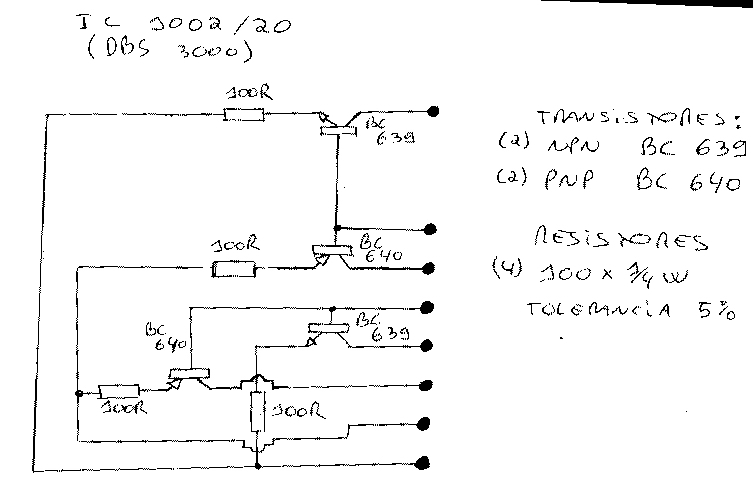 IC 1002/20
(DBS 3000)
100R
BC
639
TRANSISTORES:
(2) NPN BC 639
(2) PNP BC 640
100R
BC
640
RESISTORES
(4) 100 x 1/4 W
TOLERANCIA 5%
BC
640
BC
639
100R
100R